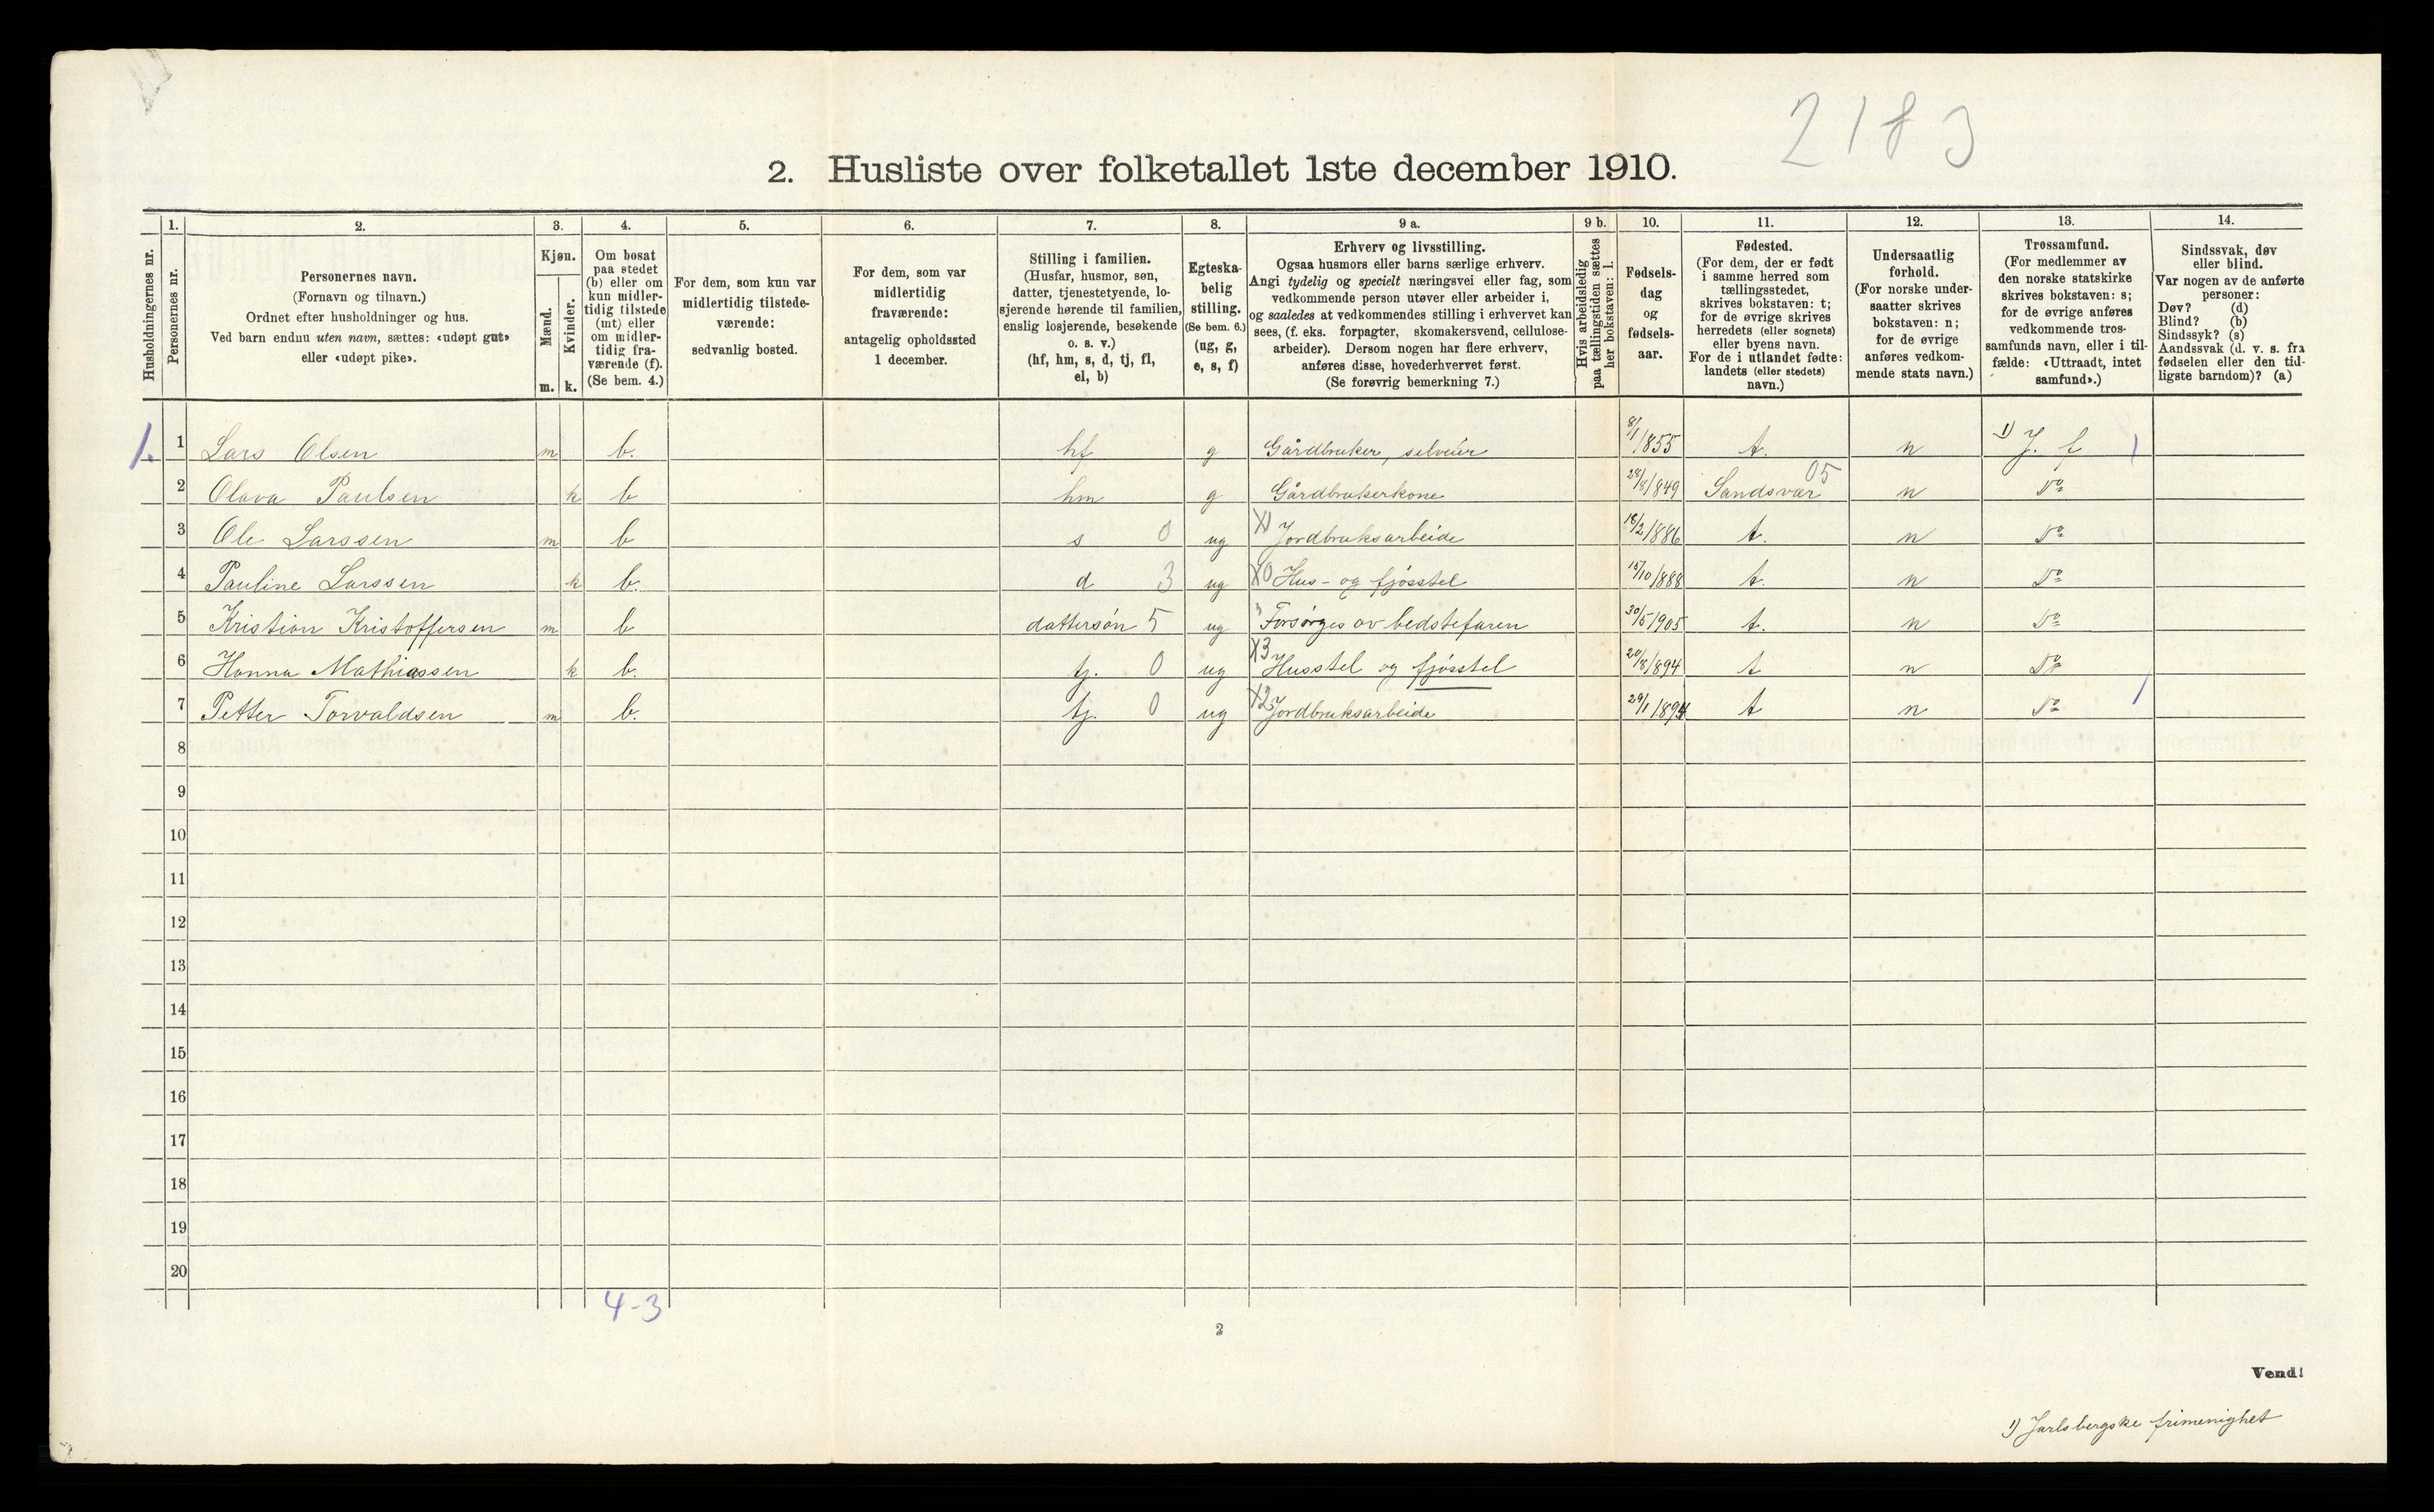 2183
2. Husliste over folketallet 1ste december 1910.
Husholdningernes nr.
1. Personernes nr.
2. Personernes navn.
(Fornavn og tilnavn.)
Ordnet efter husholdninger og hus.
Ved barn endnu uten navn, sættes: «udøpt gut»
eller «udøpt pike».
3. Kjøn.
Mænd. m.
Kvinder. k.
4. Om bosat
paa stedet
(b) eller om
kun midler-
tidig tilstede
(mt) eller
om midler-
tidig fra-
værende (f).
(Se bem. 4.)
5. For dem, som kun var
midlertidig tilstede-
værende:
sedvanlig bosted.
6. For dem, som var
midlertidig
fraværende:
antagelig opholdssted
1 december.
7. Stilling i familien.
(Husfar, husmor, søn,
datter, tjenestetyende, lo-
sjerende hørende til familien,
enslig losjerende, besøkende
o. s. v.)
(hf, hm, s, d, tj, fl,
el, b)
8. Egteska-
belig
stilling.
(Se bem. 6.)
(ug, g,
e, s, f)
9 a. Erhverv og livsstilling.
Ogsaa husmors eller barns særlige erhverv.
Angi tydelig og specielt næringsvei eller fag, som
vedkommende person utøver eller arbeider i,
og saaledes at vedkommendes stilling i erhvervet kan
sees, (f. eks. forpagter, skomakersvend, cellulose-
arbeider). Dersom nogen har flere erhverv,
anføres disse, hovederhvervet først.
(Se forøvrig bemerkning 7.)
9 b. Hvis arbeidsledig
paa tællingstiden sættes
her bokstaven: l.
10. Fødsels-
dag
og
fødsels-
aar.
11. Fødested.
(For dem, der er født
i samme herred som
tællingsstedet,
skrives bokstaven: t;
for de øvrige skrives
herredets (eller sognets)
eller byens navn.
For de i utlandet fødte:
landets (eller stedets)
navn.)
12. Undersaatlig
forhold.
(For norske under-
saatter skrives
bokstaven: n;
for de øvrige
anføres vedkom-
mende stats navn.)
13. Trossamfund.
(For medlemmer av
den norske statskirke
skrives bokstaven: s;
for de øvrige anføres
vedkommende tros-
samfunds navn, eller i til-
fælde: «Uttraadt, intet
samfund».)
14. Sindssvak, døv
eller blind.
Var nogen av de anførte
personer:
Døv? (d)
Blind? (b)
Sindssyk? (s)
Aandssvak (d. v. s. fra
fødselen eller den tid-
ligste barndom)? (a)
1. 1 Lars Olsen m b. hf g Gårdbruker, selveier 8/1 1855 t. n 1) J. f
2 Olava Paulsen k b hm g Gårdbrukerkone 28/8 1849 Sandsvær 05 n Do
3 Ole Larssen m b s 0 ug X1 Jordbruksarbeide 18/2 1886 t. n Do
4 Pauline Larssen k b. d 3 ug X0 Hus- og fjösstel 15/10 1888 t. n Do
5 Kristian Kristoffersen m b dattersön 5 ug Forsörges av bedstefaren 30/5 1905 t. n Do
6 Hanna Mathiassen k b. tj. 0 ug X3 Husstel og fjösstel 20/8 1894 t n Do
7 Petter Torvaldsen m b. tj. 0 ug X2 Jordbruksarbeide 29/1 1894 t n Do
8
9
10
11
12
13
14
15
16
17
18
19
20
4-3
2
Vend!
1) Jarlsbergske frimenighet